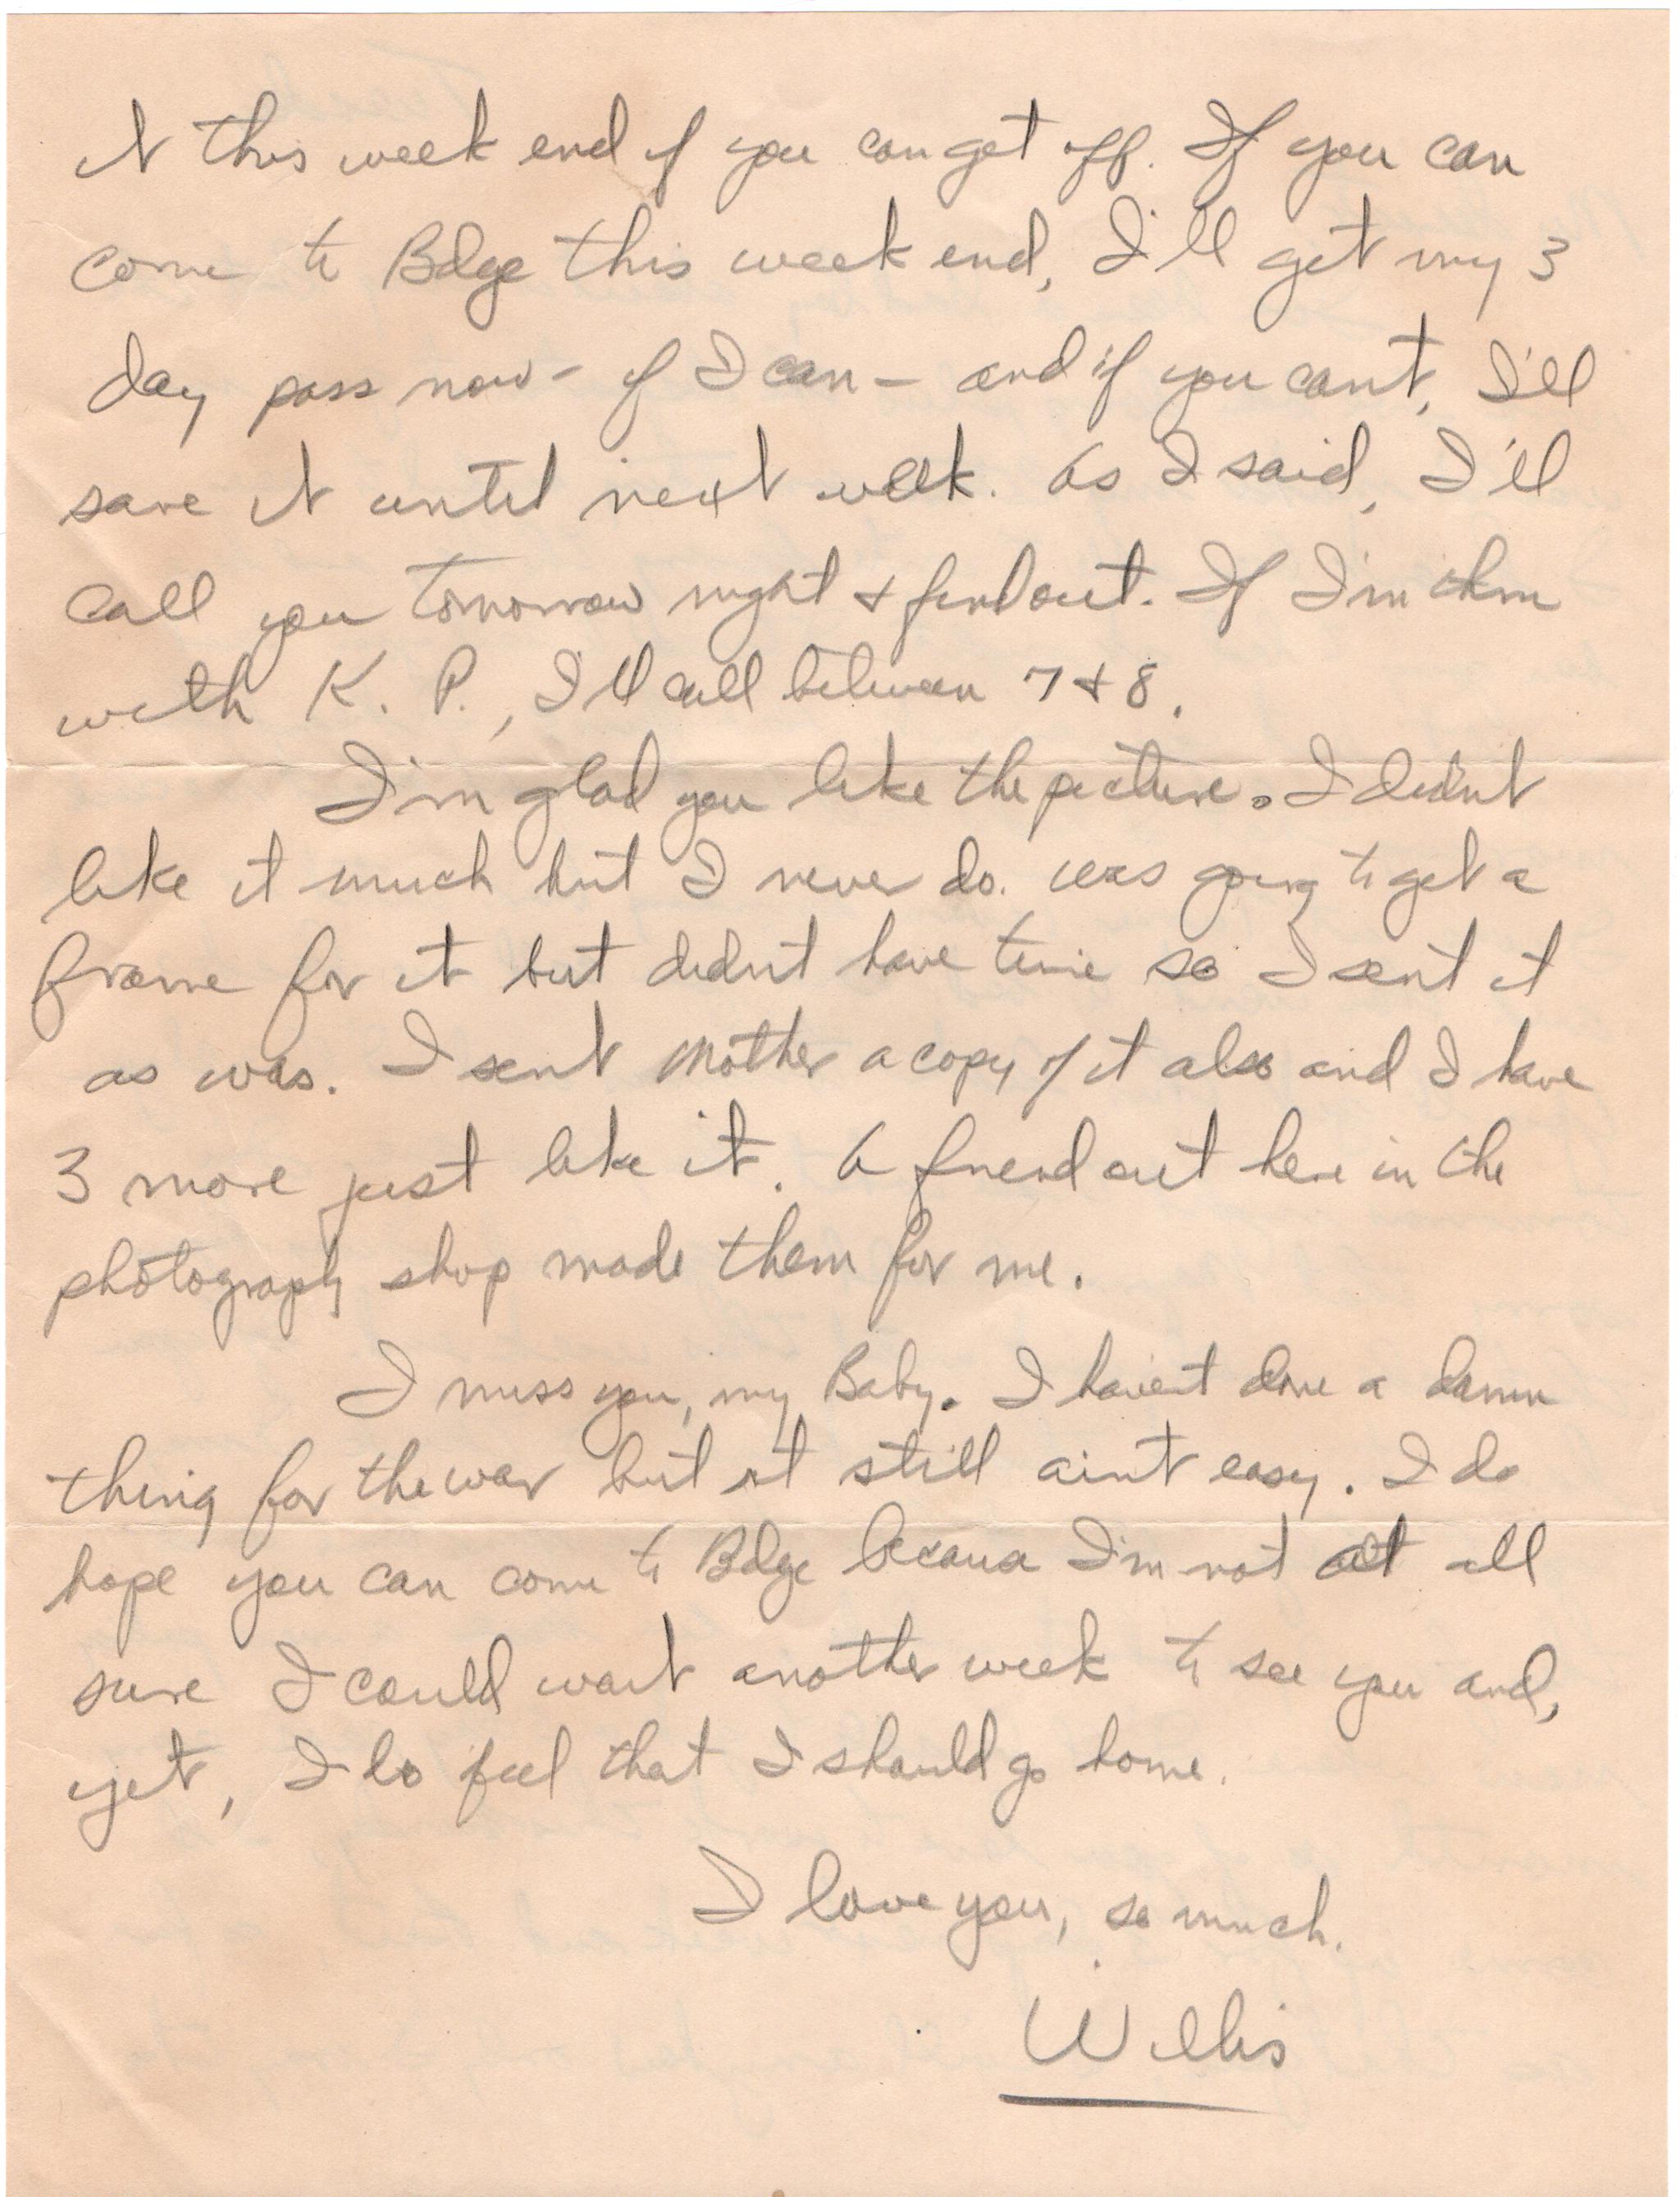 it this week end if you can get off. If you can
come to Bdge this week end, I'll get my 3
day pass now - if I can - and if you can't, I'll
save it until next week. As I said, I'll
call you tomorrow night & find out. If I'm thru
with K. P., I'll call between 7 & 8.
I'm glad you like the picture. I didn't
like it much but I never do. Was going to get a
frame for it but didn't have time so I sent it
as was. I sent Mother a copy of it also and I have
3 more just like it. A friend out here in the
photography shop made them for me.
I miss you, my Baby. I haven't done a damn
thing for the war but it still ain't easy. I do
hope you can come to Bdge because I'm not at all
sure I could wait another week to see you and,
yet, I do feel that I should go home.
I love you, so much.
Willis